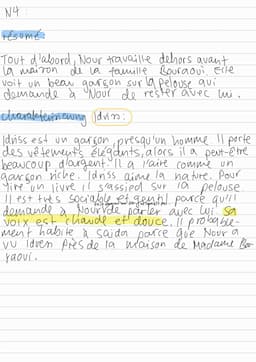 N4
résumé
Tout d'abord, Nour travaille dehors avant
la maison de la famille Bouraoui. Elle
voit un beau garson sur la pelouse qui
demande à Nour de rester avec lui.
Charakterisierung Idriss:
Idriss est un garson, presqu'un homme Il porte
des vêtements élégants, alors il a peut-être
beaucoup d'argent. Il a l'aire comme un
garson riche. Idriss aime la nature. Pour
lire un livre il s'assied sur la pelouse.
Il est très sociable et gentil parce qu'il
demande à Nour de parler avec lui. Sa
voix est chaude et douce. Il probable-
ment habite à Saida parce que Nour a
vu Idren près de la maison de Madame Bou
raoui.